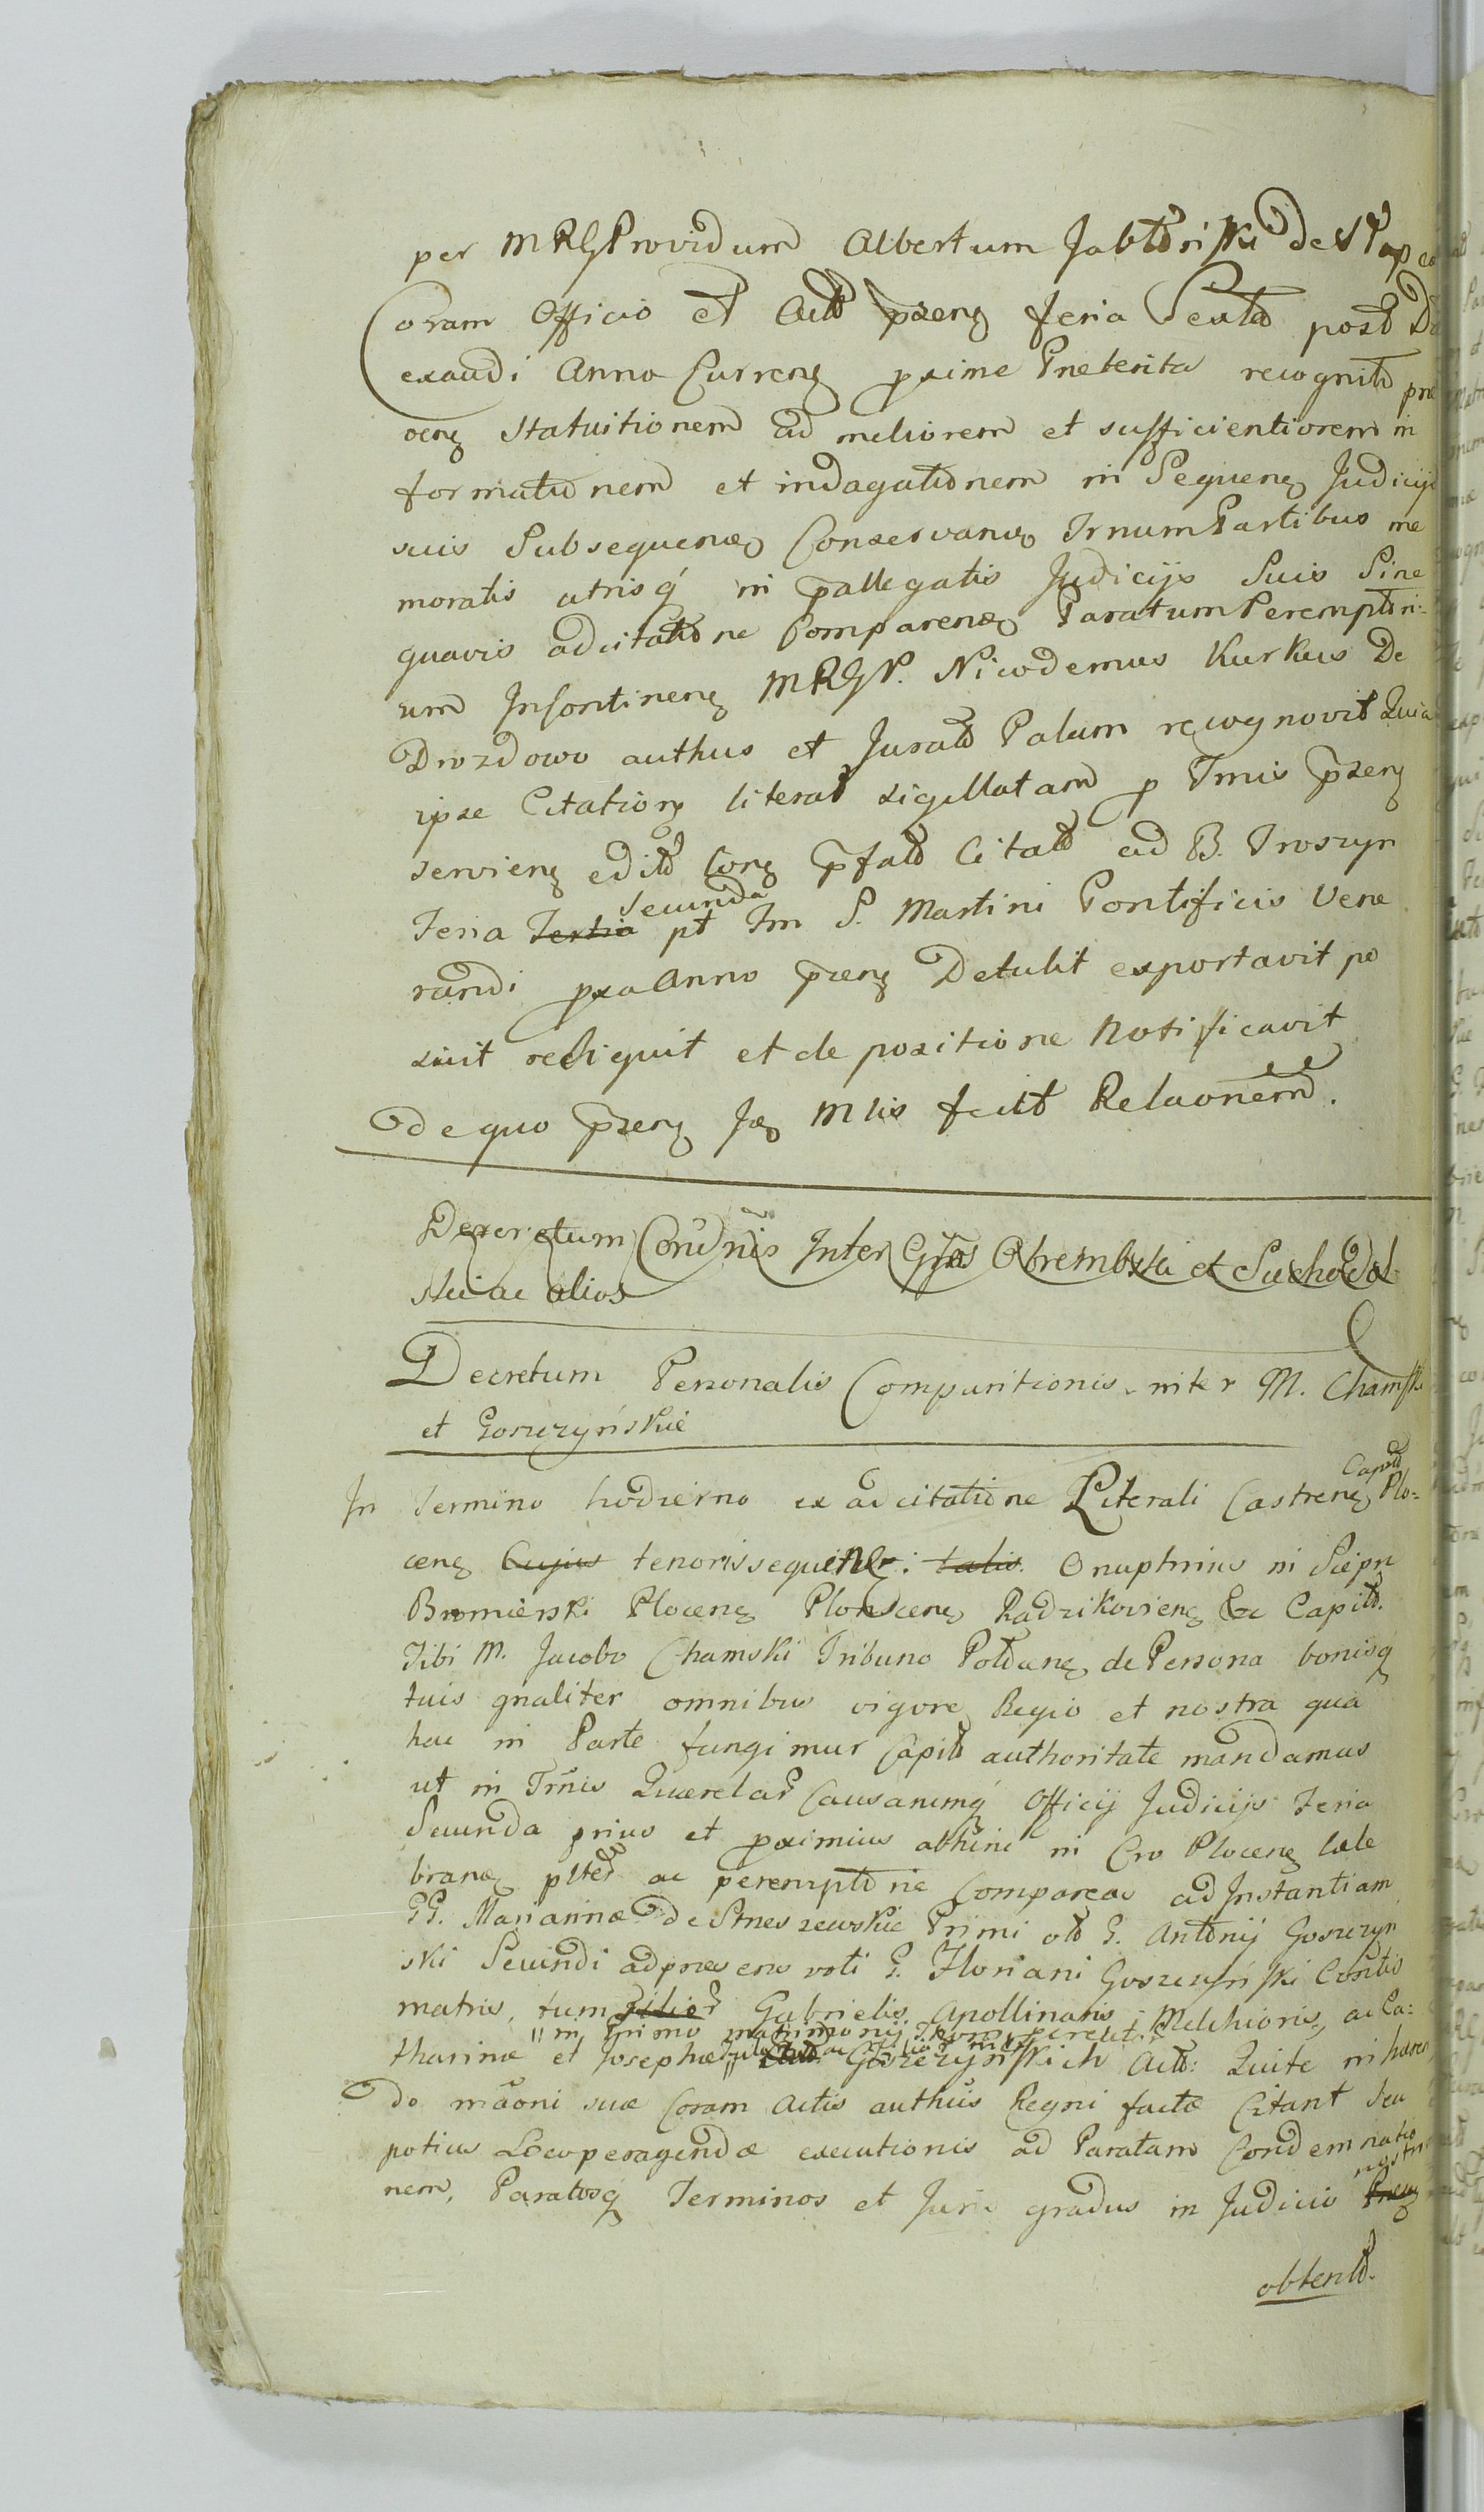 per MRGProvidum Albertum Jabłoński de
Coram Officio et Actis pnsens feria Sexta post
exaudi Anno Currens proxime Preterita recognita
oens Statuitionem ad meliorem et sufficientiorem in
formationem et indagationem in Sequens Judicijs
suis Subsequenes Conservanes Trnum Partibus me
moratis utrisq in pallegatis Judicijs Suis Sine
quavis adcitatione Comparenes Paratum Peremptori-
um Insontinens MRGP. Nicodemus Kurkus De
Drozdowo authus et Jurat Palam recognovit Quia
ipse Citations literat sigillatam p Trmis pnsens
serviens edit Cons pfato Citato ad B. Troszyn
Feria Tertia Secunda pt Fm S. Martini Pontificis Vene
randi pxa Anno pnsens Detulit exportavit po
suit reliquit et de positione Notificavit
de quo pnsens Jas Mlis fecit Relaonem.
Decretum Condnis Inter Gsos Obrembski et Suchodol
ski ac alios
Decretum Personalis Comparitionis inter M. Chamski
et Goszczyńskie
In Termino hodierno ex adcitatione Literali Castrens Capit Plo-
cens Cujus tenoris sequitur: talis. Onuphrius in Siepn
Bromierski Plocens Plonscens Radzikoviens &c Capit.
Tibi M. Jacobo Chamski Tribuno Potocens de Persona bonisq
tuis gnaliter omnibus vigore Regio et nostra qua
hac in Parte fungimur Capit authoritate mandamus
ut in Trmis Querelar Causarumq Officij Judicijs Feria
Secunda prius et proximius abhinc in Cro Plocens cele
branes plter ac peremptorie Compareas ad Instantiam
GG. Mariannæ de Streszewskie Primi olt G. Antonij Goszczyń
ski Secundi adpræsens voti G. Floriani Goszczyński Contis
matris, tum filior Gabrielis Apollinaris Melchioris, ac Ca-
" in Primo matrimonij
tharinæ et Josephæ Goszczyńskich Act: Qui te in hæren
do maoni suæ Coram Actis authus Regni factæ Citant seu
potius Loco peragendæ executionis ad Paratam Condemnatio
nem, Paratosq Terminos et Juris gradus in Judicio nostro
obtent.